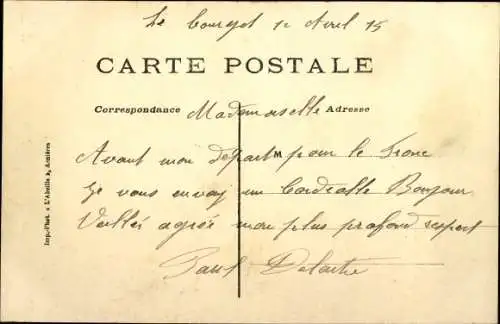 Le Bourget 12 Avril 15
CARTE POSTALE
Correspondance Mademoiselle Adresse
Avant mon départ pour le Front
M
Je vous envoy un Cordialle Bonjour
Veillés agrée mon plus profond respect
Paul
Imp.-Phot. « L'Abeille », Asnières